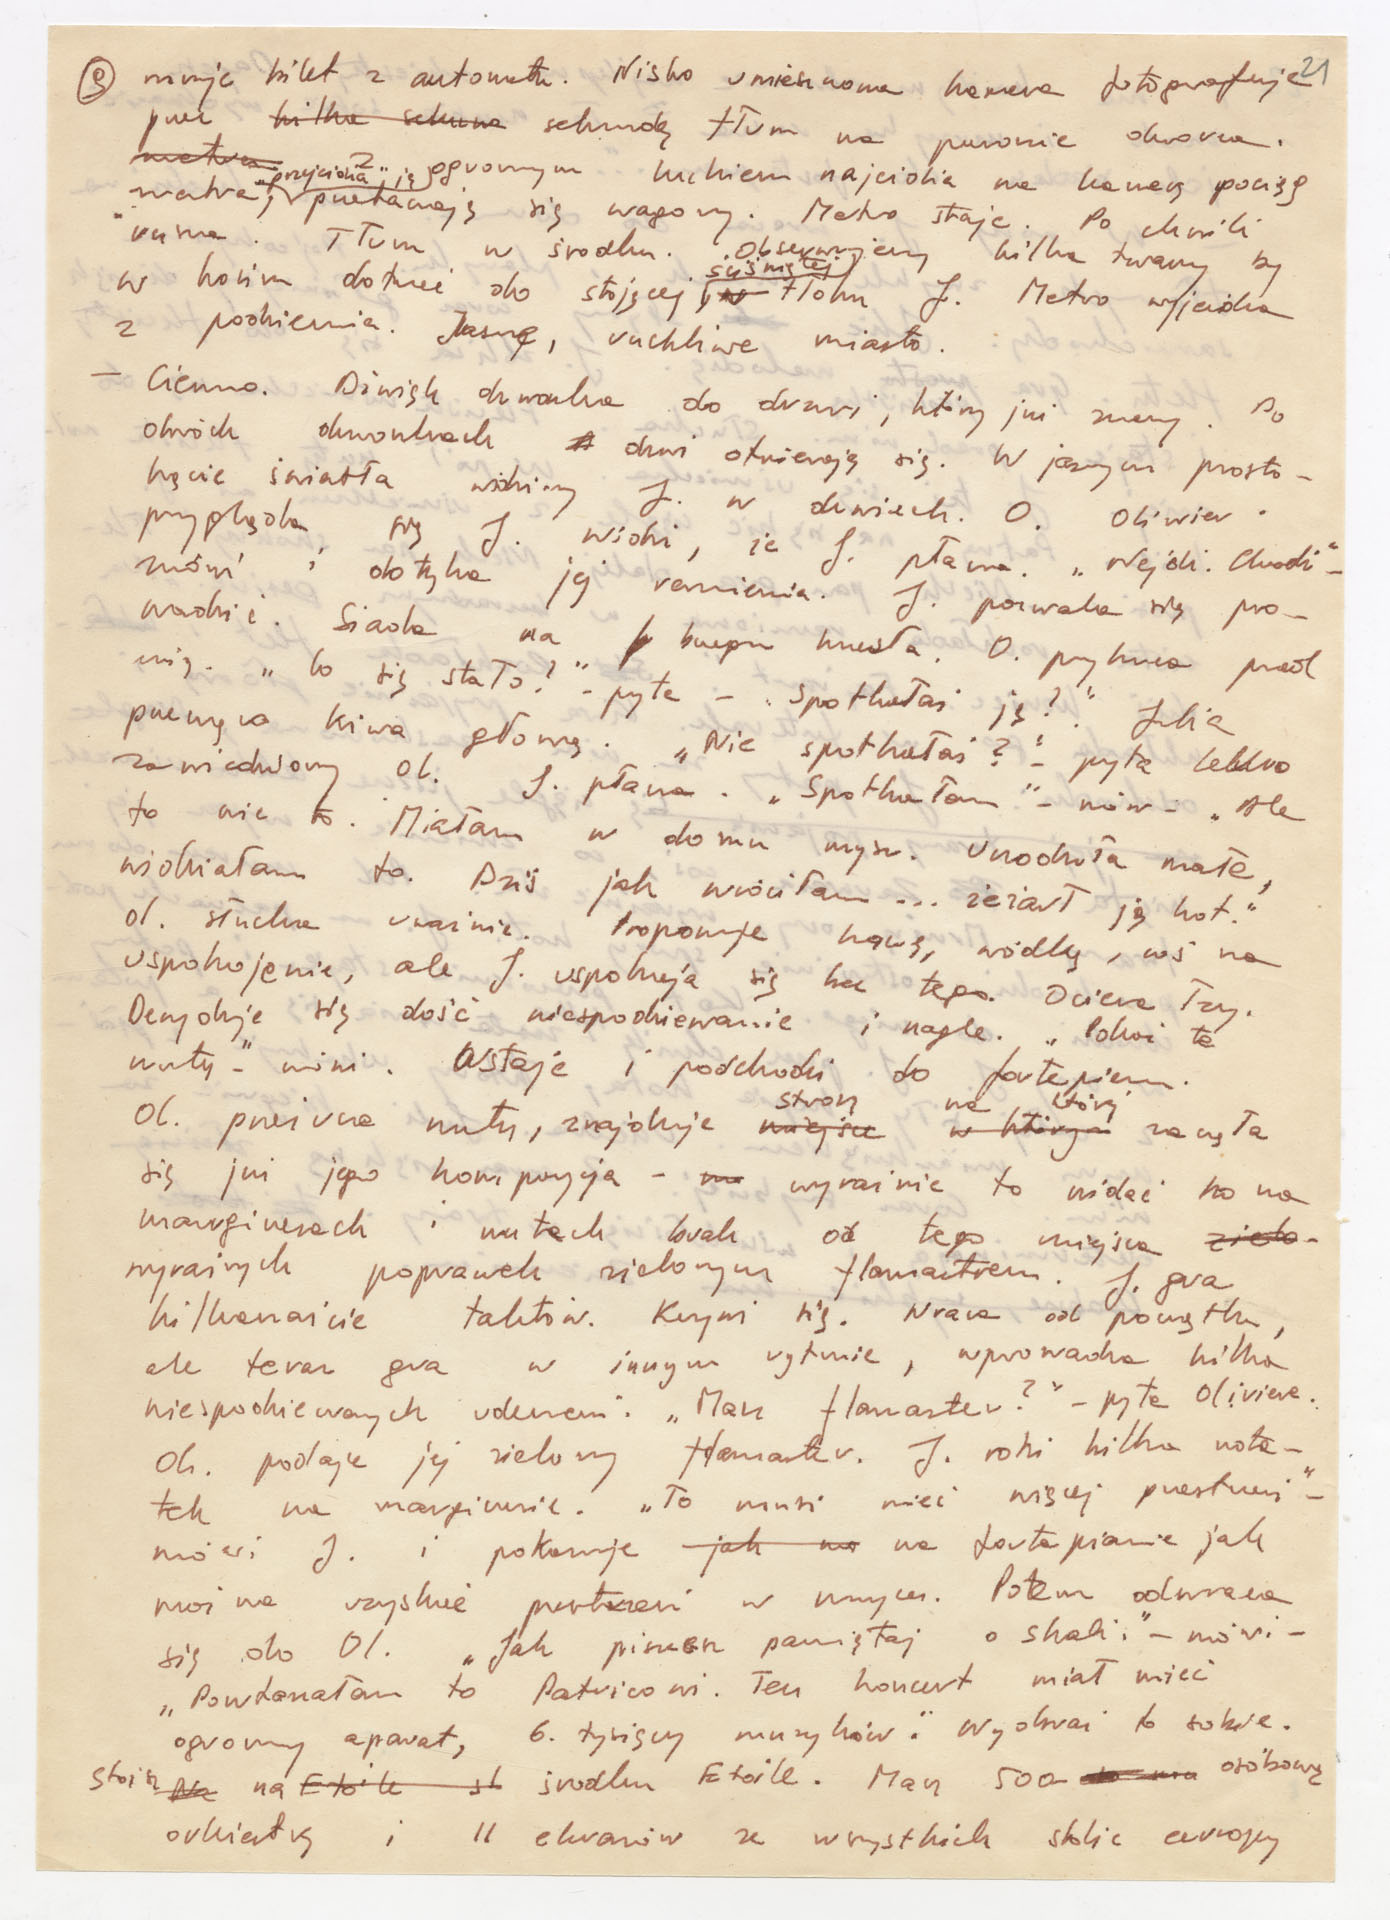 21
muje bilet z automatu. Nisko umieszczona kamera fotografuje
przez kilka sekund sekundę tłum na peronie dworca.
metra z ogromnym hukiem najeżdża na kamerę pociąg
metra, "przejeżdża" ją przetaczają się wagony. Metro staje. Po chwili
rusza. Tłum w środku. Obserwujemy kilka twarzy by
w końcu dotrzeć do stojącej, w ściśniętej tłoku J. Metro wyjeżdża
z podziemia. Jasne, ruchliwe miasto.
– Ciemno. Dźwięk dzwonka do drzwi, który już znamy. Po
dwóch dzwonkach drzwi otwierają się. W jasnym prosto-
kącie światła widzimy J. w drzwiach. O. Oliwier.
przygląda się J. widzi, że J. płacze. "Wejdź. Chodź"-
mówi i dotyka jej ramienia. J. pozwala się pro-
wadzić. Siada na brzegu krzesła. O. przykuca przed
nią. "Co się stało?" - pyta - "Spotkałaś ją?." Julia
przecząco kiwa głową. "Nie spotkałaś?" - pyta lekko
zawiedziony Ol. J. płacze. "Spotkałam" - mówi - "Ale
to nie to. Miałam w domu mysz. Urodziła małe,
widziałam to. Dziś jak wróciłam... zeżarł ją kot."
Ol. słucha uważnie. Proponuje kawę, wódkę, coś na
uspokojenie, ale J. uspokaja się bez tego. Ociera łzy.
Decyduje się dość niespodziewanie i nagle. "Pokaż te
nuty" - mówi. Wstaje i podchodzi do fortepianu.
Ol. przerzuca nuty, znajduje miejsce w którym stronę na której zaczęła
się już jego kompozycja - wyraźnie to widać bo na
marginesach i nutach brak od tego miejsca zielo-
wyraźnych poprawek zielonym flamastrem. J. gra
kilkanaście taktów. Krzywi się. Wraca od początku,
ale teraz gra w innym rytmie, wprowadza kilka
niespodziewanych uderzeń. "Masz flamaster?" - pyta Oliviera.
Ol. podaje jej zielony flamaster. J. robi kilka nota-
tek na marginesie. "To musi mieć więcej przestrzeni" -
mówi J. i pokazuje jak na na fortepianie jak
można uzyskać przestrzeń w muzyce. Potem odwraca
się do Ol. "Jak piszesz pamiętaj o skali." - mówi -
"Powtarzałam to Patricowi. Ten koncert miał mieć
ogromny aparat, 6. tysięcy muzyków." Wyobraź to sobie.
Stoisz Na na Etoile st środku Etoile. Masz 500 osobową
orkiestrę i 11 ekranów ze wszystkich stolic europy